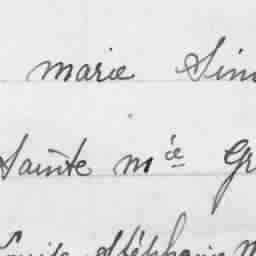 marie Sim
Sainte mie Gr
Louise Stéphanie M